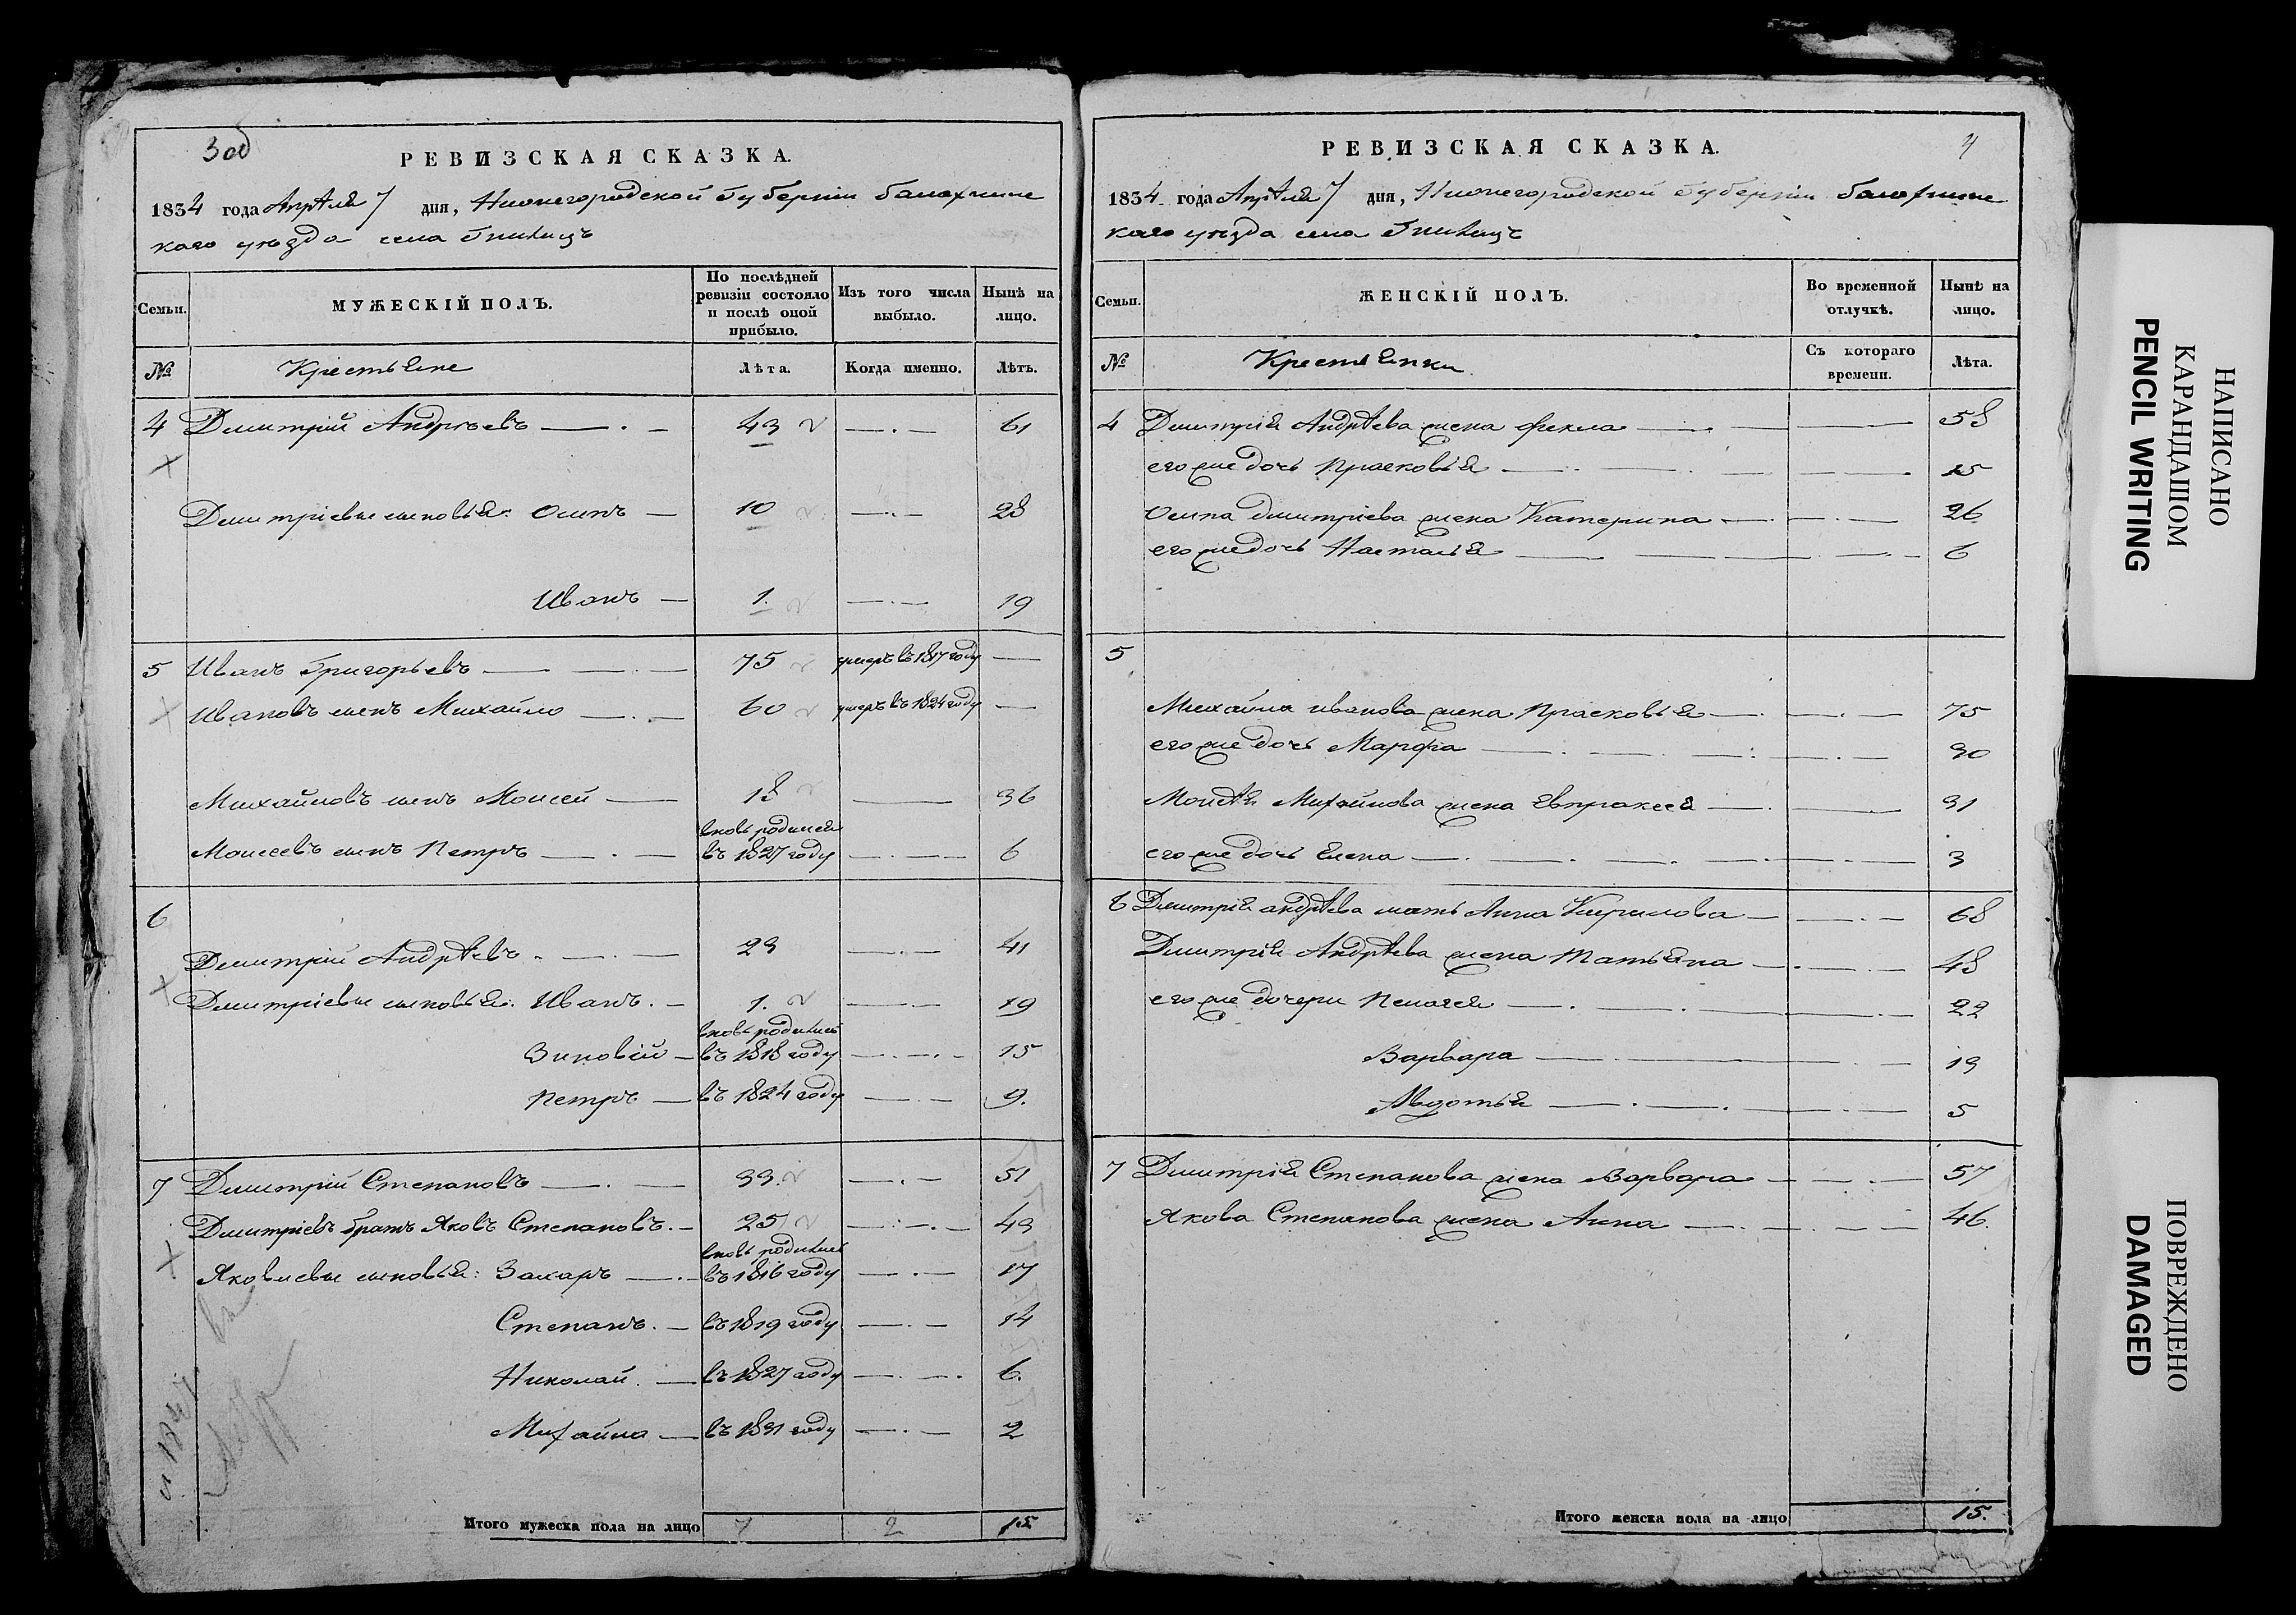 3 об
РЕВИЗСКАЯ СКАЗКА.
1834 года Апрѣля 7 дня, Нижегородской Губерніи балахнинс
каго уѣзда села Гнилицъ
Семьи.
МУЖЕСКІЙ ПОЛЪ.
По послѣдней ревизіи состояло и послѣ оной прибыло.
Изъ того числа выбыло.
Нынѣ на лицо.
№ Крестьяне Лѣта. Когда именно. Лѣтъ.
4 Дмитрій Андрѣевъ — 43 — 61
Дмитріевы сыновья: Осипъ — 10 — 28
Иванъ — 1. — 19
5 Иванъ Григорьевъ — 75 умеръ въ 1817 году —
Ивановъ сынъ Михайло — 60 умеръ въ 1824 году —
Михайловъ сынъ Моисей — 18 — 36
вновь родился
Моисеевъ сынъ Петръ — въ 1827 году — 6
6
Дмитрій Андрѣевъ — 23 — 41
Дмитріевы сыновья: Иванъ. — 1. — 19
вновь родились
Зиновій — въ 1818 году — 15
Петръ — въ 1824 году — 9.
7 Дмитрій Степановъ — 33. — 51
Дмитріевъ братъ Яковъ Степановъ. — 25 — 43
вновь родились
Яковлевы сыновья: Захаръ — въ 1816 году — 17
Степанъ. — въ 1819 году — 14
Николай. — въ 1827 году — 6.
Михайла — въ 1831 году — 2
Итого мужеска пола на лицо 7 2 15
4
РЕВИЗСКАЯ СКАЗКА.
1834 года Апрѣля 7 дня, Нижегородской Губерніи балахнинс
каго уѣзда села Гнилицъ
Семьи.
ЖЕНСКІЙ ПОЛЪ.
Во временной отлучкѣ.
Нынѣ на лицо.
№ Крестьянки Съ котораго времени. Лѣта.
4 Дмитрія Андрѣева жена Фекла — 58
его же дочь Прасковья — 15
Осипа дмитріева жена Катерина — 26
его же дочь Насталья — 6
5
Михайла иванова жена Прасковья — 75
его же дочь Марфа — 30
Моисѣя Михайлова жена Евпраксея — 31
его же дочь Елена — 3
6 Дмитрія андрѣева мать Анна Кирилова — 68
Дмитрія Андрѣева жена Татьяна — 48
его же дочери Пелагея — 22
Варвара — 19
Авдотья — 5
7 Дмитрія Степанова жена Варвара — 57
Якова Степанова жена Анна — 46.
Итого женска пола на лицо 15.
НАПИСАНО
КАРАНДАШОМ
PENCIL WRITING
ПОВРЕЖДЕНО
DAMAGED